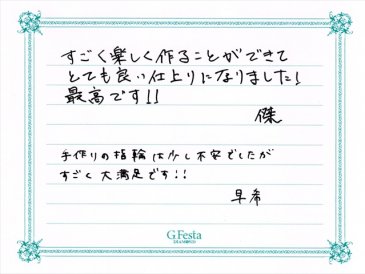 すごく楽しく作ることができて
とても良い仕上りになりました!
最高です!!
傑
手作りの指輪は少し不安でしたが
すごく大満足です!!
早希
G.Festa
DIAMOND